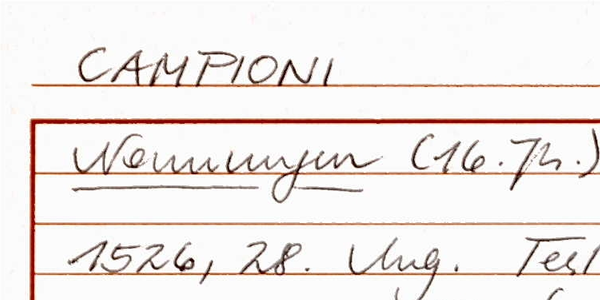 CAMPIONI
Nennungen (16. Jh.)
1526, 28. Aug. Test